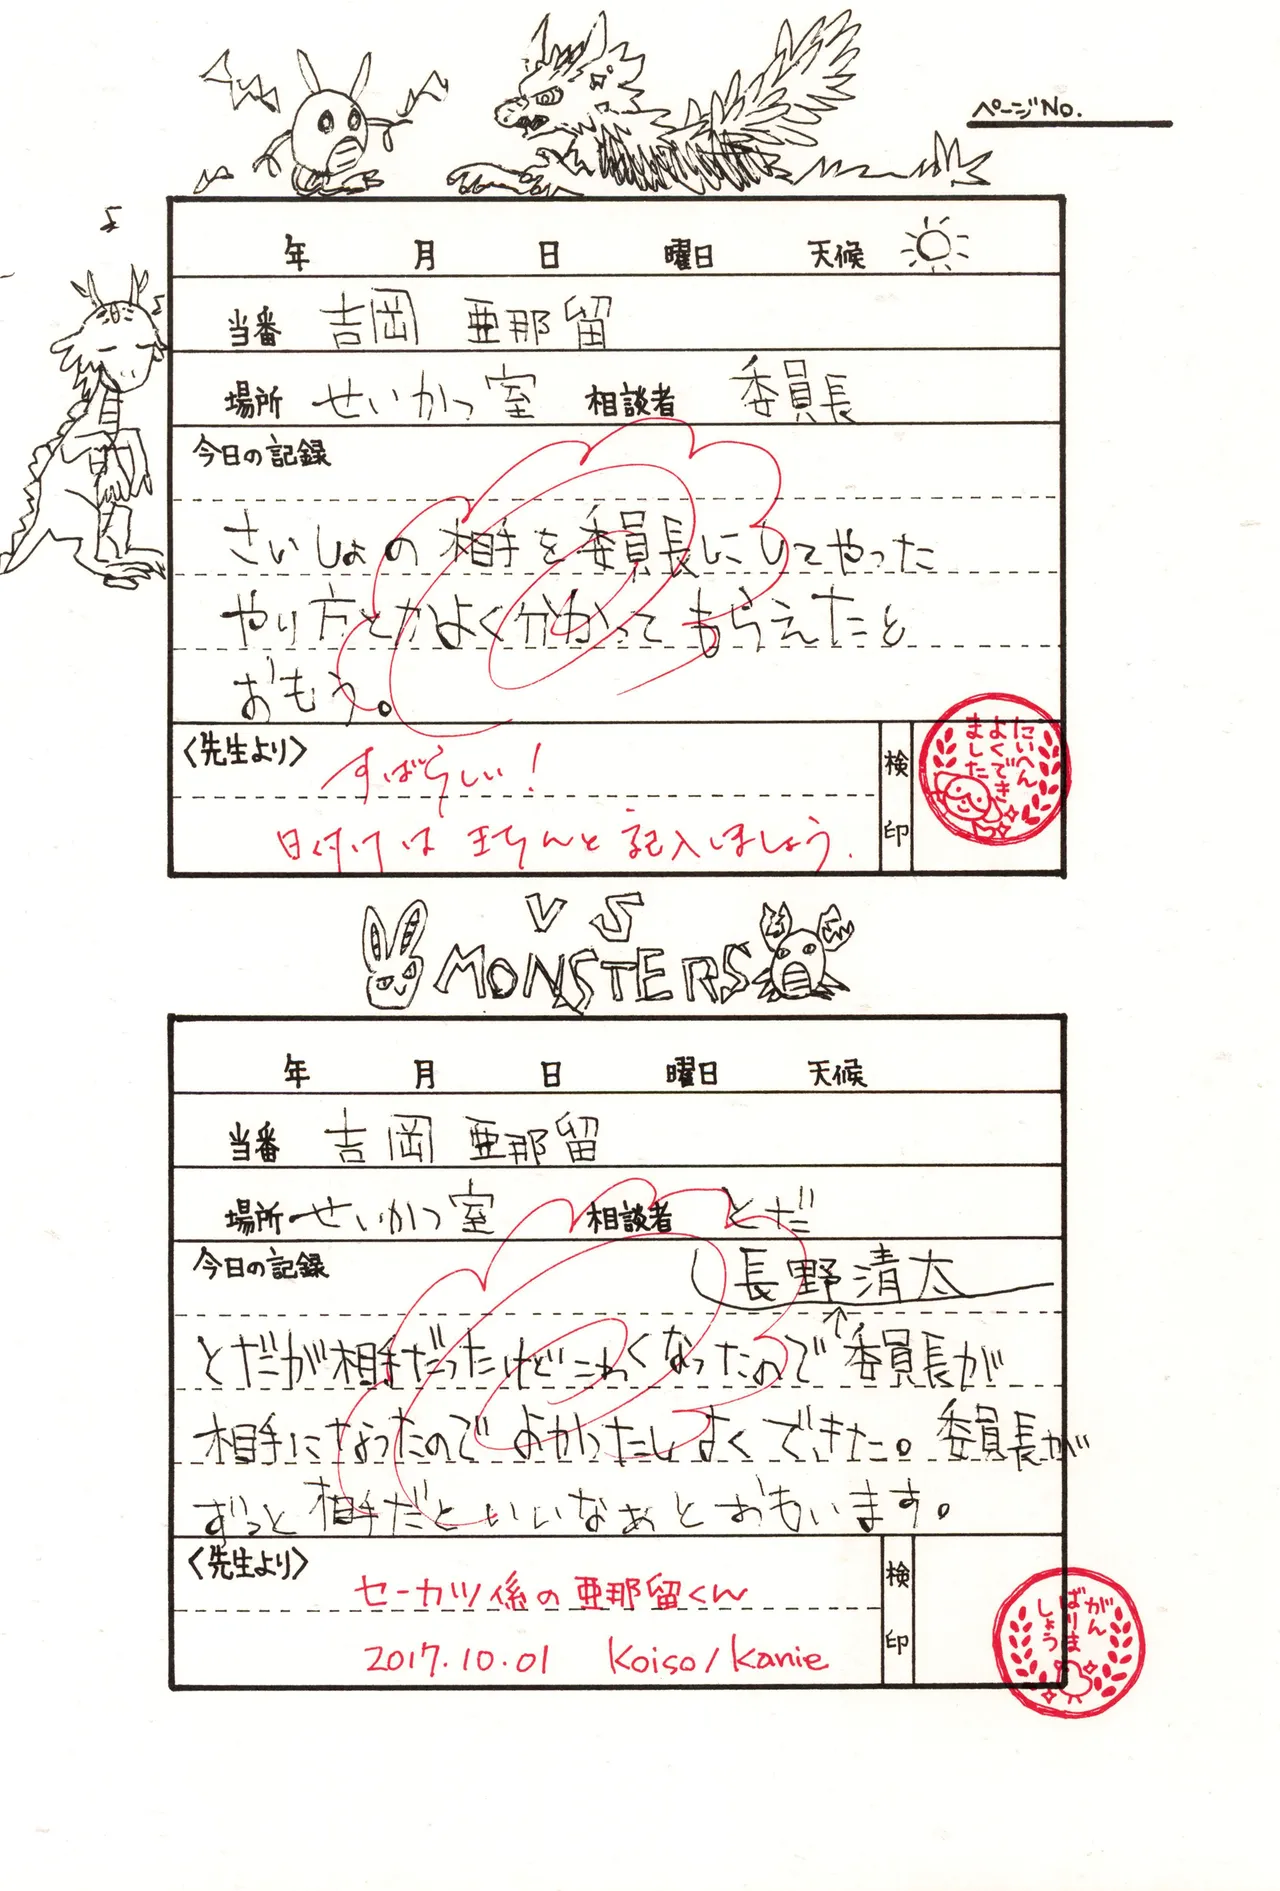 ページNo.
年 月 日 曜日 天候
当番 吉岡 亜那留
場所 せいかつ室 相談者 委員長
今日の記録
さいしょの相手を委員長にしてやった
やり方とかよく分かってもらえたと
おもう。
〈先生より〉
すばらしい!
日付けはきちんと記入しましょう.
検印
たいへん
よくでき
ました
VS
MONSTERS
年 月 日 曜日 天候
当番 吉岡 亜那留
場所 せいかつ室 相談者 とだ
今日の記録
長野清太
↑
とだが相手だったけどこわくなったので委員長が
相手になったのでよかったしよくできた。委員長が
ずっと相手だといいなぁとおもいます。
〈先生より〉
セーカツ係の亜那留くん
2017.10.01 Koiso/Kanie
検印
がん
ばりま
しょう